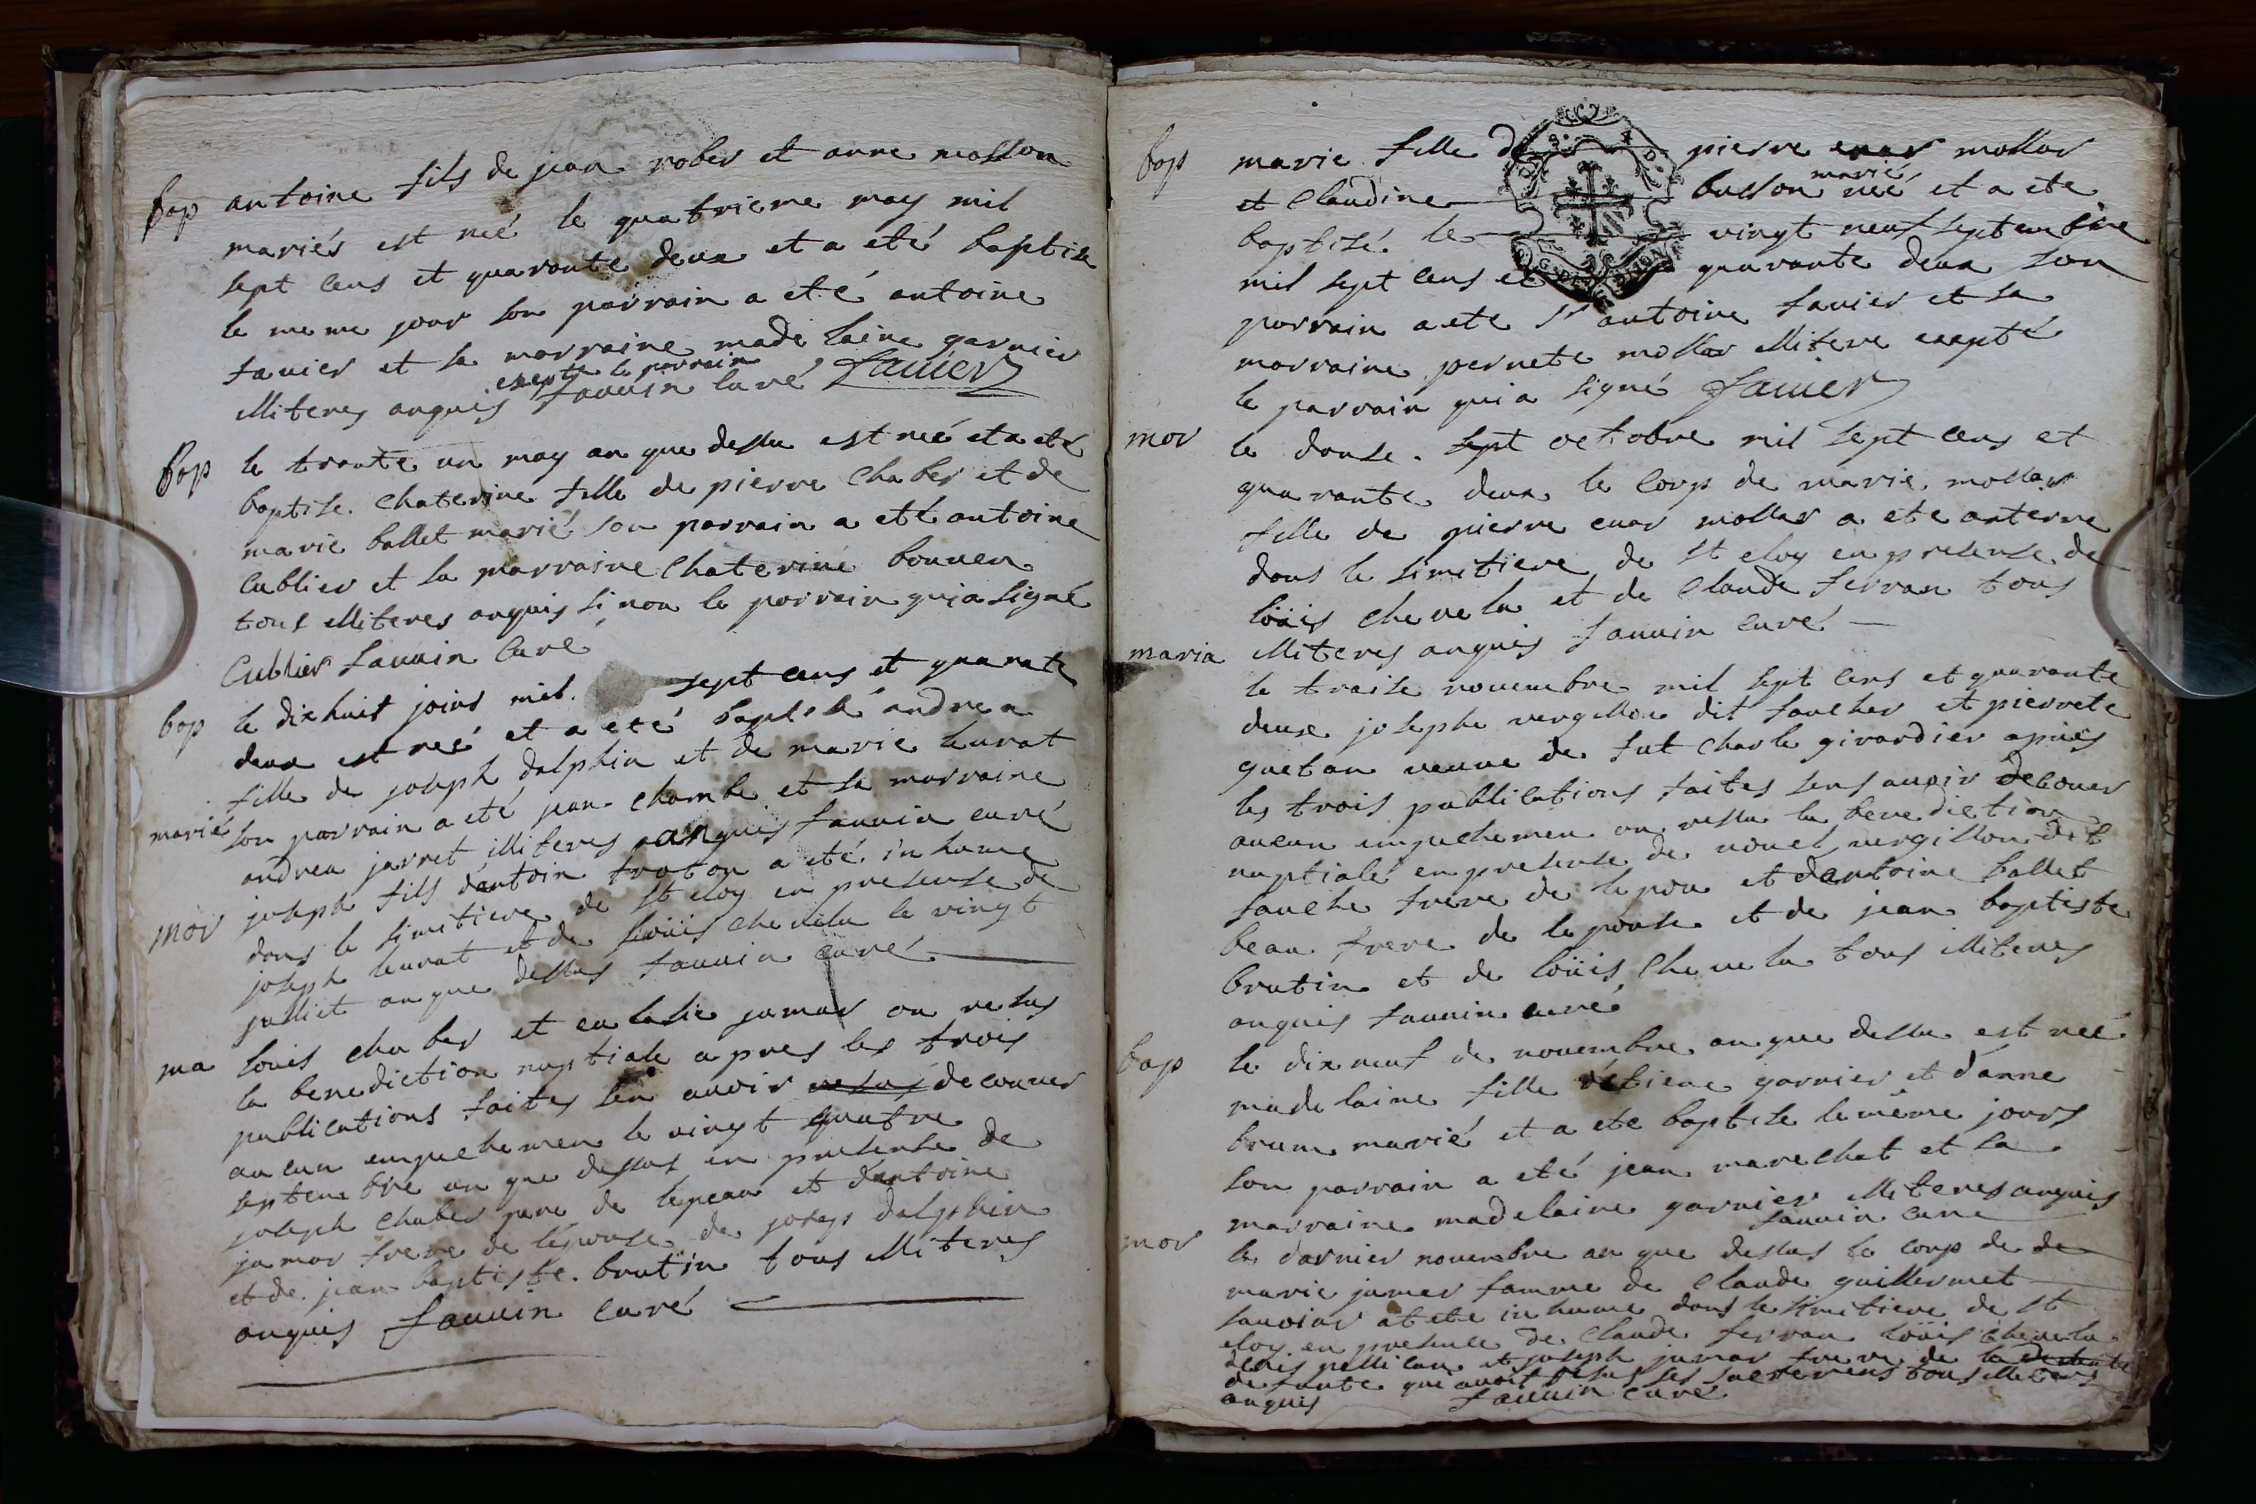 bap antoine fils de jean rober et anne masson
mariés est neé le quatrieme may mil
sept cens et quarante deux et a eté baptise
le meme jour son parrain a eté antoine
fauier et sa marraine made laine garnier
exepte le parrain
illiteres anquis fauuin curé fauier
bap le trante un may an que dessu est neé et a eté
baptise chaterine fille de pierre chaber et de
marie ballet marié son parrain a eté antoine
cublier et sa marraine chaterine bouuen
tous illiteres anquis si non le parrain qui a signé
Cublier fauuin curé
bap le dix huit joins mil sept cens et quarate
deux est neé et a eté baptisé andrea
fille de joseph dalphin et de marie leurat
marié son parrain a eté jean chambe et sa marraine
andrea jarret illiteres anquis fauuin curé
mor joseph fils dantoin traton a eté in hume
dans le simitiere de st eloy en presense de
joseph leurat et de loüis cheuelu le vingt
julliet an que dessus fauuin curé
ma louis chaber et eulalie jamar on resus
la benediction nuptiale apres les trois
publications faites sen auoir resus decouuer
aucun empechemen le vingt quatre
septembre an que dessus en presense de
joseph chaber pere de lepeau et dantoine
jamar frere de lépouse de joseps dalphin
et de jean baptiste brutin tous illiteres
anquis fauuin curé
bap marie fille de pierre enar mollar
marié
et claudine busson neé et a ete
baptisé le vingt neuf septembre
mil sept cens et quarante deux son
parrain a ete sr antoine fauier et sa
marraine pernete mollar illitere exepté
le parrain qui a signé fauier
mor le douse sept octobre mil sept cens et
quarante deux le corp de marie mollar
fille de pierre enar mollar a ete anterre
dans le simitiere de st eloy en presense de
loüis cheuelu et de claude ferran tous
illiteres anquis fauuin curé
maria le traise nouembre mil sept cens et quarante
deux josephe vergillon dit faucher et pierrete
guetan veuue de fut charle girardier apries
les trois publications faites sens auoir decouer
aucun empechemen on ressu la benediction
nuptiale en presense de nouel vergillon dit
fauche frere de lepou et dantoine ballet
beau frere de lepouse et de jean baptiste
brutin et de loüis cheuelu tous illiteres
anquis fauuin curé
bap le dix neuf de nouembre an que dessu est neé
madelaine fille détiene garnier et d'anne
brum marié et a ete baptise le même jours
son parrain a eté jean marechat et sa
marraine madelaine garnier illiteres anquis
fauuin cure
mor le darnier nouembre an que dessus le corp de de
marie jamar famme de claude guillermet
sauoiar at ete in hume dans le simitiere de st
eloy en presense de claude ferran loüis cheuelu
denis pellican et joseph jamar frere de la defunte
defunte qui auoit resus ses sacremens tous illiteres
anquis fauuin curé